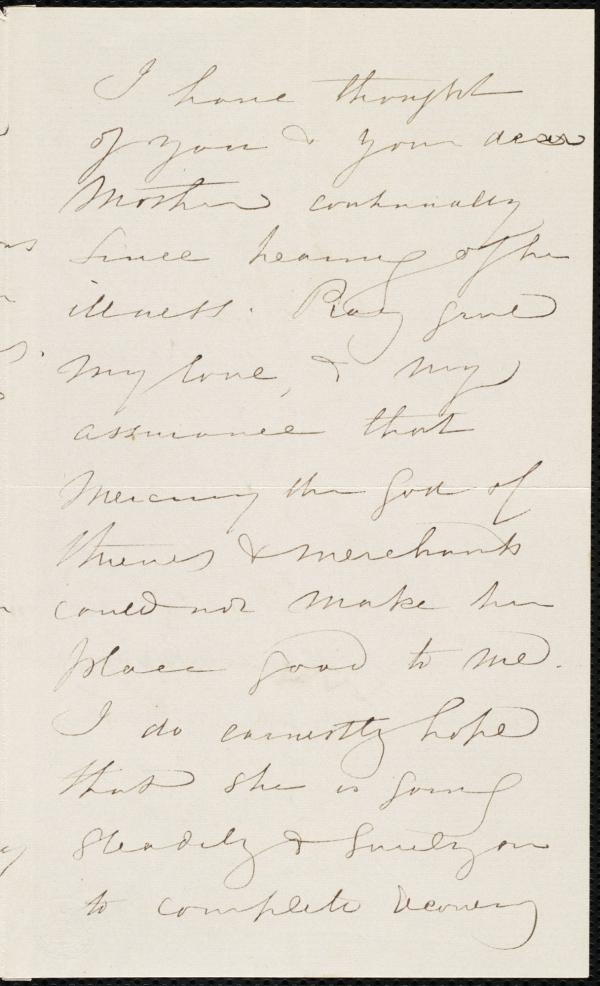 I have thought
of you & your dear
Mother continually
since hearing of her
illness. Pray give
my love, & my
assurance that
Mercury the god of
thieves & merchants
could not make her
place good to me.
I do earnestly hope
that she is going
steadily & surely on
to complete recovery